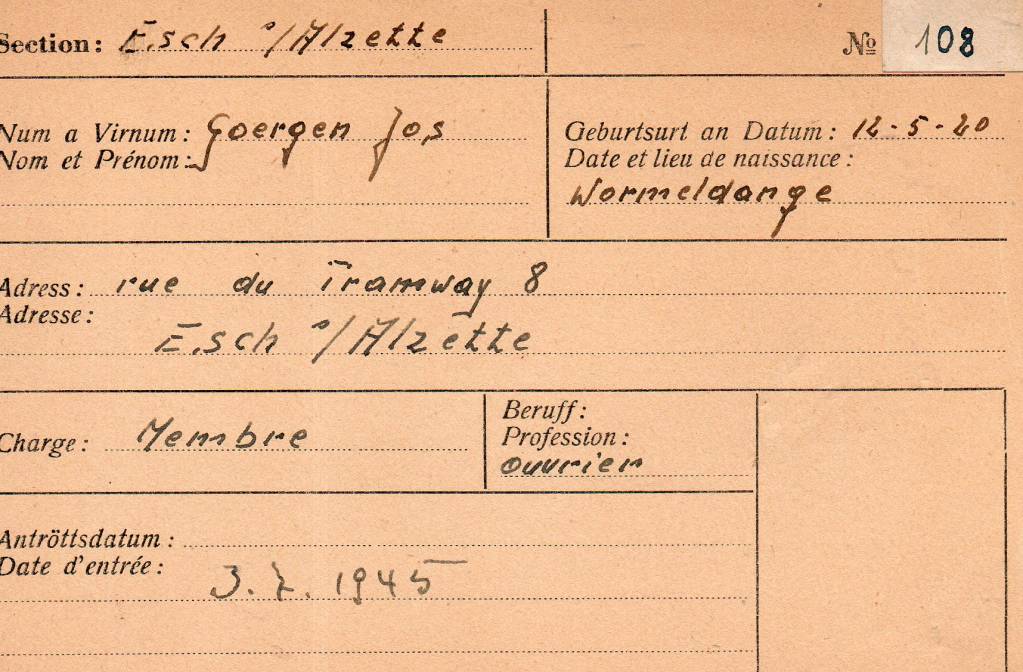 Section: Esch s/Alzette
№ 108
Num a Virnum: Goergen Jos
Nom et Prénom:
Geburtsurt an Datum: 12-5-20
Date et lieu de naissance:
Wormeldange
Adress: rue du Tramway 8
Adresse:
Esch s/Alzette
Charge: Membre
Beruff:
Profession:
ouvrier
Antröttsdatum:
Date d'entrée:
3.7.1945